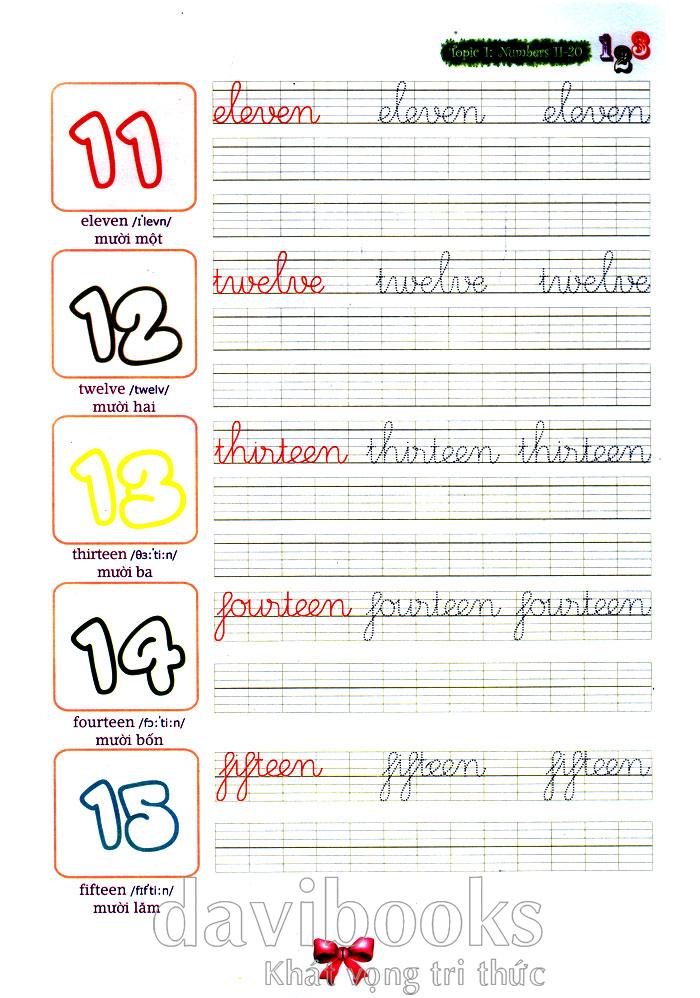 Topic 1: Numbers 11-20
1 2 3
11
eleven /ɪˈlevn/
mười một
eleven eleven eleven
12
twelve /twelv/
mười hai
twelve twelve twelve
13
thirteen /θɜːˈtiːn/
mười ba
thirteen thirteen thirteen
14
fourteen /fɔːˈtiːn/
mười bốn
fourteen fourteen fourteen
15
fifteen /fɪfˈtiːn/
mười lăm
fifteen fifteen fifteen
davibooks
Khát vọng tri thức